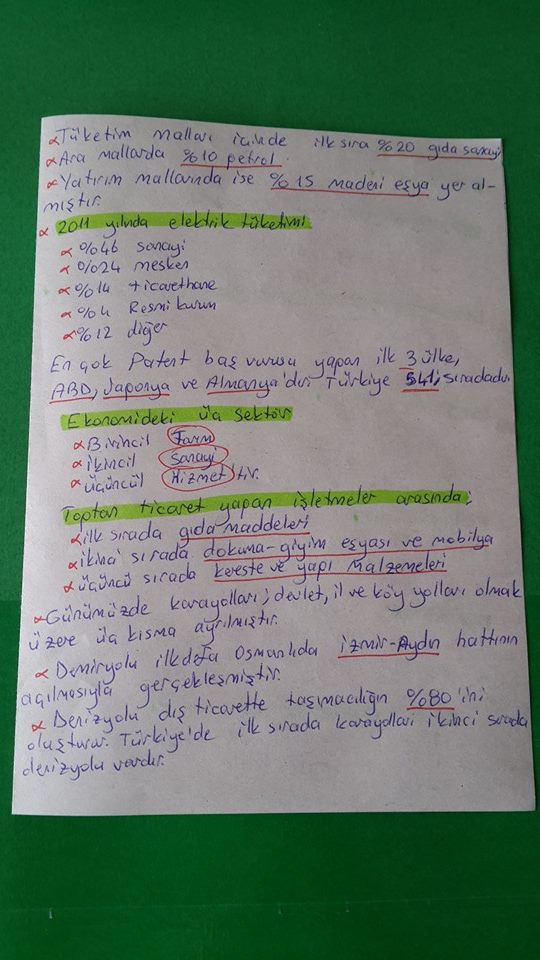 ∝Tüketim malları içinde ilk sıra %20 gıda sanayi
∝Ara mallarda %10 petrol.
∝Yatırım mallarında ise %15 madeni eşya yer al-
mıştır.
∝ 2011 yılında elektrik tüketimi
∝ %46 sanayi
∝ %24 mesken
∝ %14 ticarethane
∝ %4 Resmi kurum
∝ %12 diğer
En çok Patent baş vurusu yapan ilk 3 ülke,
ABD, Japonya ve Almanya'dır Türkiye sıradadır
Ekonomideki üç sektör
∝ Birincil Tarım
∝ ikincil Sanayi
∝ üçüncül Hizmet'tir.
Toptan ticaret yapan işletmeler arasında;
∝ilk sırada gıda maddeleri
∝ikinci sırada dokuma-giyim eşyası ve mobilya
∝üçüncü sırada kereste ve yapı malzemeleri
∝Günümüzde karayolları; devlet, il ve köy yolları olmak
üzere üç kısma ayrılmıştır.
∝ Demiryolu ilkdefa Osmanlıda izmir-Aydın hattının
açılmasıyla gerçekleşmiştir.
∝ Denizyolu dış ticarette taşımacılığın %80'ini
oluşturur. Türkiye'de ilk sırada karayolları ikinci sırada
denizyolu vardır.